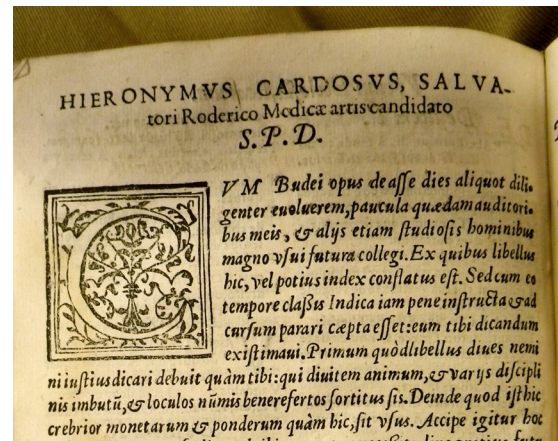 HIERONYMVS CARDOSVS, SALVA-
tori Roderico Medicæ artis candidato
S. P. D.
CVM Budei opus de asse dies aliquot dili-
genter euoluerem, paucula quædam auditori-
bus meis, & alijs etiam studiosis hominibus
magno vsui futura collegi. Ex quibus libellus
hic, vel potius index conflatus est. Sed cum eo
tempore claßis Indica iam pene instructa & ad
cursum parari cæpta esset: eum tibi dicandum
existimaui. Primum quòd libellus diues nemi
ni iustius dicari debuit quàm tibi: qui diuitem animum, & varijs discipli
nis imbutũ, & loculos nũmis bene refertos sortitus sis. Deinde quod isthic
crebrior monetarum & ponderum quàm hic, sit vsus. Accipe igitur hoc